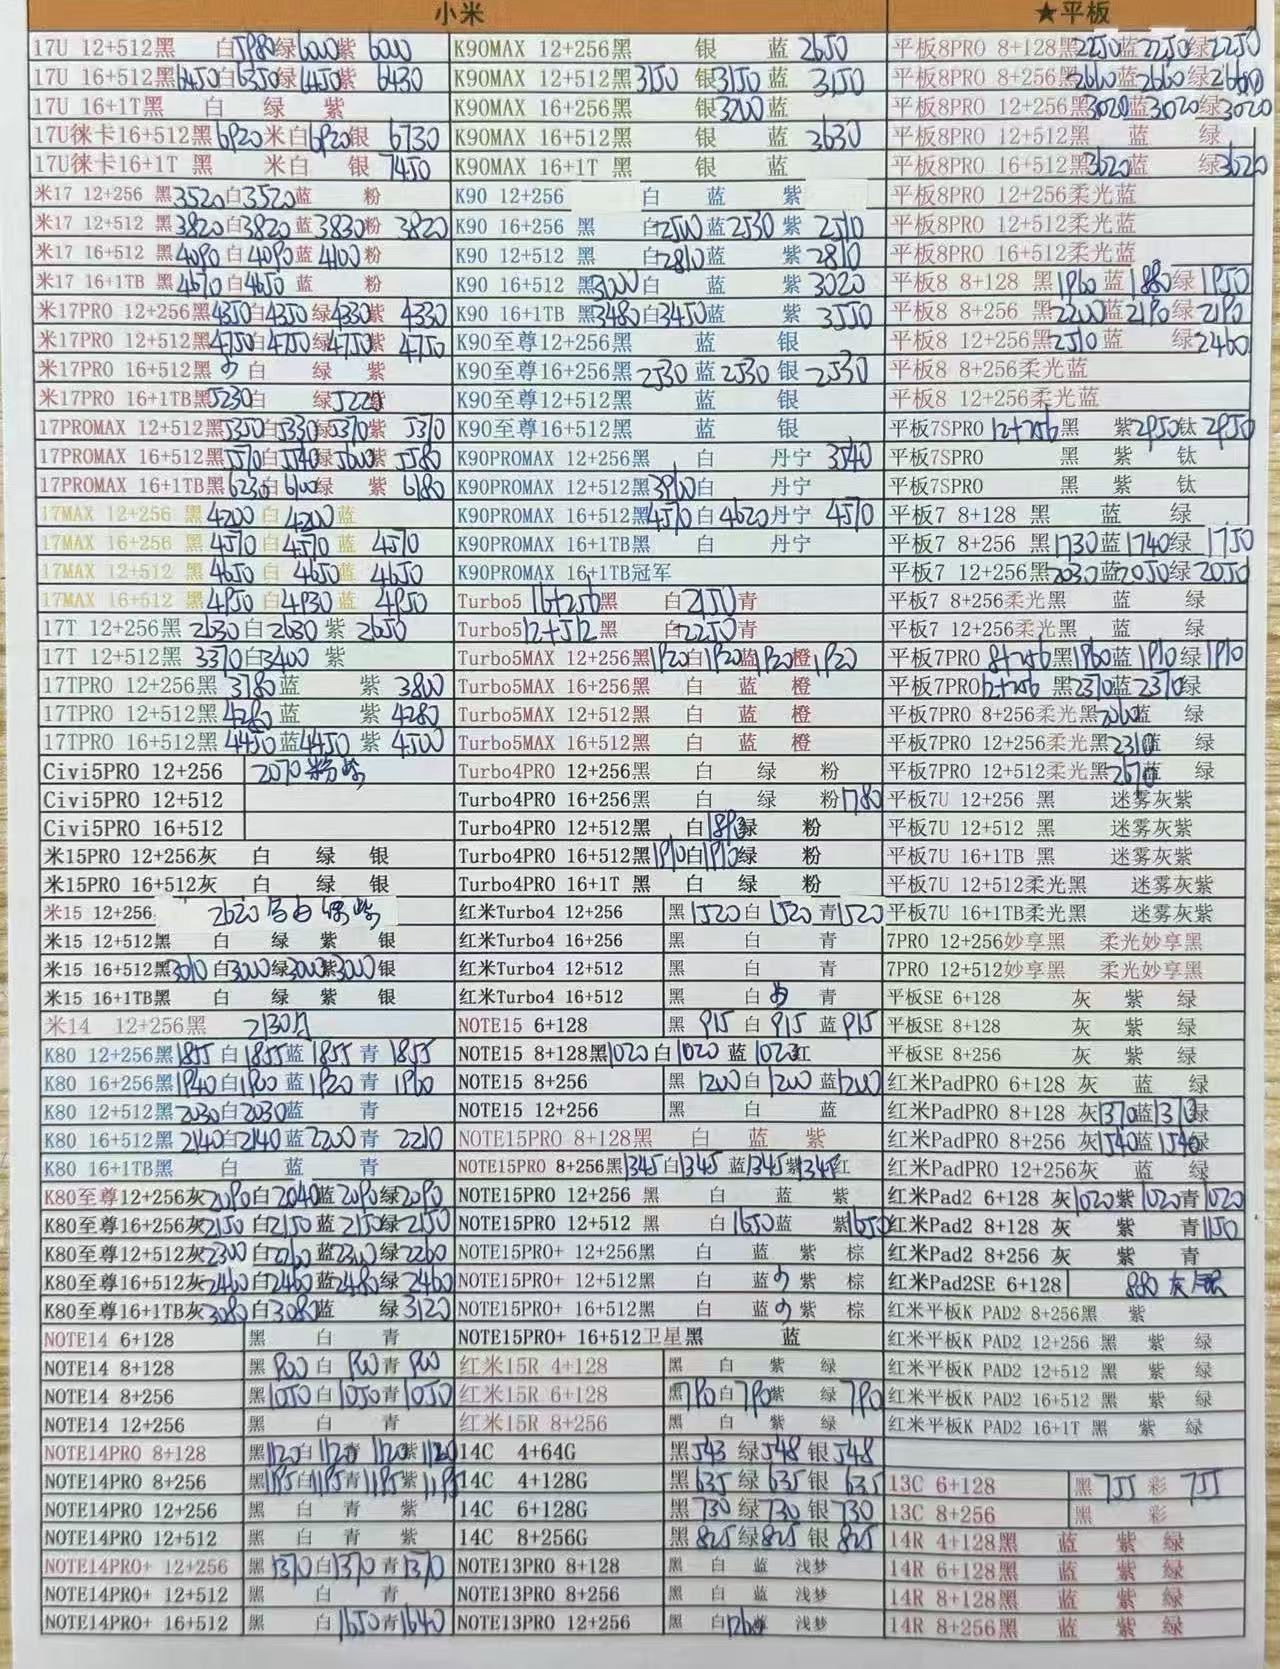 小米
17U 12+512黑 白5980绿6000紫 6000
17U 16+512黑6450白6350绿6450紫 6430
17U 16+1T黑 白 绿 紫
17U徕卡16+512黑6920米白6920银 6730
17U徕卡16+1T 黑 米白 银 7450
米17 12+256 黑3520白3520蓝 粉
米17 12+512 黑3820白3820蓝3830粉 3820
米17 16+512 黑4090白4090蓝4100粉
米17 16+1TB黑4670白4650蓝 粉
米17PRO 12+256黑4350白4350绿4330紫 4330
米17PRO 12+512黑4750白4750绿4750紫 4750
米17PRO 16+512黑 白 绿 紫
米17PRO 16+1TB黑5230白 绿5220紫
17PROMAX 12+512黑5350白5330绿5370紫 5310
17PROMAX 16+512黑5570白5540绿5600紫 5580
17PROMAX 16+1TB黑6230白6100绿 紫 6180
17MAX 12+256 黑4200白4200蓝
17MAX 16+256 黑4570白4570蓝 4510
17MAX 12+512 黑4650白4650蓝4650
17MAX 16+512 黑4950白4930蓝 4950
17T 12+256黑 2630白2630 紫 2650
17T 12+512黑 3370白3400 紫
17TPRO 12+256黑 3780蓝 紫 3800
17TPRO 12+512黑 4280蓝 紫 4280
17TPRO 16+512黑 4450蓝4450 紫 4500
Civi5PRO 12+256 2070粉紫
Civi5PRO 12+512
Civi5PRO 16+512
米15PRO 12+256灰 白 绿 银
米15PRO 16+512灰 白 绿 银
米15 12+256 2620 白绿紫
米15 12+512黑 白 绿 紫 银
米15 16+512黑3010白3000绿3000紫3000银
米15 16+1TB黑 白 绿 紫 银
米14 12+256黑 2130
K80 12+256黑1855白1855蓝1855青 1855
K80 16+256黑1940白1900蓝1920青 1900
K80 12+512黑2030白2030蓝 青
K80 16+512黑2140白2140蓝2200青 2210
K80 16+1TB黑 白 蓝 青
K80至尊12+256灰2090白2040蓝2090绿2090
K80至尊16+256灰2150白2150蓝2150绿2150
K80至尊12+512灰2300白2260蓝2300绿2260
K80至尊16+512灰2460白2460蓝2480绿2460
K80至尊16+1TB灰3080白3080蓝 绿3120
NOTE14 6+128 黑 白 青
NOTE14 8+128 黑900白 900青900
NOTE14 8+256 黑1050白1050青1050
NOTE14 12+256 黑 白 青
NOTE14PRO 8+128 黑1120白1120青1120紫1120
NOTE14PRO 8+256 黑1195白1195青1195紫1195
NOTE14PRO 12+256 黑 白 青 紫
NOTE14PRO 12+512 黑 白 青 紫
NOTE14PRO+ 12+256 黑1370白1370青1370
NOTE14PRO+ 12+512 黑 白 青
NOTE14PRO+ 16+512 黑 白1650青1640
K90MAX 12+256黑 银 蓝 2650
K90MAX 12+512黑3150 银3150蓝 3150
K90MAX 16+256黑 银3200蓝
K90MAX 16+512黑 银 蓝 3630
K90MAX 16+1T 黑 银 蓝
K90 12+256 白 蓝 紫
K90 16+256 黑 白2500蓝2530紫 2510
K90 12+512 黑 白2810蓝 紫 2810
K90 16+512 黑3000白 蓝 紫 3020
K90 16+1TB 黑3480白3450蓝 紫 3550
K90至尊12+256黑 蓝 银
K90至尊16+256黑2530蓝2530银 2530
K90至尊12+512黑 蓝 银
K90至尊16+512黑 蓝 银
K90PROMAX 12+256黑 白 丹宁 3540
K90PROMAX 12+512黑3900白 丹宁
K90PROMAX 16+512黑4570白4620丹宁 4570
K90PROMAX 16+1TB黑 白 丹宁
K90PROMAX 16+1TB冠军
Turbo5 16+256黑 白2150青
Turbo5 12+512黑 白2250青
Turbo5MAX 12+256黑1920白1920蓝1920橙1920
Turbo5MAX 16+256黑 白 蓝 橙
Turbo5MAX 12+512黑 白 蓝 橙
Turbo5MAX 16+512黑 白 蓝 橙
Turbo4PRO 12+256黑 白 绿 粉
Turbo4PRO 16+256黑 白 绿 粉1780
Turbo4PRO 12+512黑 白1890绿 粉
Turbo4PRO 16+512黑1910白1910绿 粉
Turbo4PRO 16+1T 黑 白 绿 粉
红米Turbo4 12+256 黑1520白1520青1520
红米Turbo4 16+256 黑 白 青
红米Turbo4 12+512 黑 白 青
红米Turbo4 16+512 黑 白 青
NOTE15 6+128 黑 915白 915蓝915
NOTE15 8+128黑1020白1020蓝 1020红
NOTE15 8+256 黑 1200白1200蓝1200
NOTE15 12+256 黑 白 蓝
NOTE15PRO 8+128黑 白 蓝 紫
NOTE15PRO 8+256黑1345白1345蓝1345紫1345红
NOTE15PRO 12+256 黑 白 蓝 紫
NOTE15PRO 12+512 黑 白1650蓝 紫1650
NOTE15PRO+ 12+256黑 白 蓝 紫 棕
NOTE15PRO+ 12+512黑 白 蓝 紫 棕
NOTE15PRO+ 16+512黑 白 蓝 紫 棕
NOTE15PRO+ 16+512卫星黑 蓝
红米15R 4+128 黑 白 紫 绿
红米15R 6+128 黑790白790紫 绿790
红米15R 8+256 黑 白 紫 绿
14C 4+64G 黑543绿548银548
14C 4+128G 黑635绿635银 635
14C 6+128G 黑730绿730银730
14C 8+256G 黑825绿825银 825
NOTE13PRO 8+128 黑 白 蓝 浅梦
NOTE13PRO 8+256 黑 白 蓝 浅梦
NOTE13PRO 12+256 黑 白1260 浅梦
★平板
平板8PRO 8+128黑2250蓝2250绿2250
平板8PRO 8+256黑2660蓝2660绿2660
平板8PRO 12+256黑3020蓝3020绿3020
平板8PRO 12+512黑 蓝 绿
平板8PRO 16+512黑3620蓝 绿3620
平板8PRO 12+256柔光蓝
平板8PRO 12+512柔光蓝
平板8PRO 16+512柔光蓝
平板8 8+128 黑1960蓝1880绿1950
平板8 8+256 黑2200蓝2190绿2190
平板8 12+256黑2510蓝 绿2460
平板8 8+256柔光蓝
平板8 12+256柔光蓝
平板7SPRO 12+256黑 紫2950钛2950
平板7SPRO 黑 紫 钛
平板7SPRO 黑 紫 钛
平板7 8+128 黑 蓝 绿
平板7 8+256 黑1730蓝1740绿1750
平板7 12+256黑2030蓝2050绿2050
平板7 8+256柔光黑 蓝 绿
平板7 12+256柔光黑 蓝 绿
平板7PRO 8+256黑1960蓝1910绿1910
平板7PRO12+256 黑2370蓝2370绿
平板7PRO 8+256柔光黑2060蓝 绿
平板7PRO 12+256柔光黑2310蓝 绿
平板7PRO 12+512柔光黑2670蓝 绿
平板7U 12+256 黑 迷雾灰紫
平板7U 12+512 黑 迷雾灰紫
平板7U 16+1TB 黑 迷雾灰紫
平板7U 12+512柔光黑 迷雾灰紫
平板7U 16+1TB柔光黑 迷雾灰紫
7PRO 12+256妙享黑 柔光妙享黑
7PRO 12+512妙享黑 柔光妙享黑
平板SE 6+128 灰 紫 绿
平板SE 8+128 灰 紫 绿
平板SE 8+256 灰 紫 绿
红米PadPRO 6+128 灰 蓝 绿
红米PadPRO 8+128 灰1370蓝1370绿
红米PadPRO 8+256 灰1540蓝1540绿
红米PadPRO 12+256灰 蓝 绿
红米Pad2 6+128 灰1020紫1020青1020
红米Pad2 8+128 灰 紫 青1150
红米Pad2 8+256 灰 紫 青
红米Pad2SE 6+128 880 灰
红米平板K PAD2 8+256黑 紫
红米平板K PAD2 12+256 黑 紫 绿
红米平板K PAD2 12+512 黑 紫 绿
红米平板K PAD2 16+512 黑 紫 绿
红米平板K PAD2 16+1T 黑 紫 绿
13C 6+128 黑 755 彩 755
13C 8+256 黑 彩
14R 4+128黑 蓝 紫 绿
14R 6+128黑 蓝 紫 绿
14R 8+128黑 蓝 紫 绿
14R 8+256黑 蓝 紫 绿